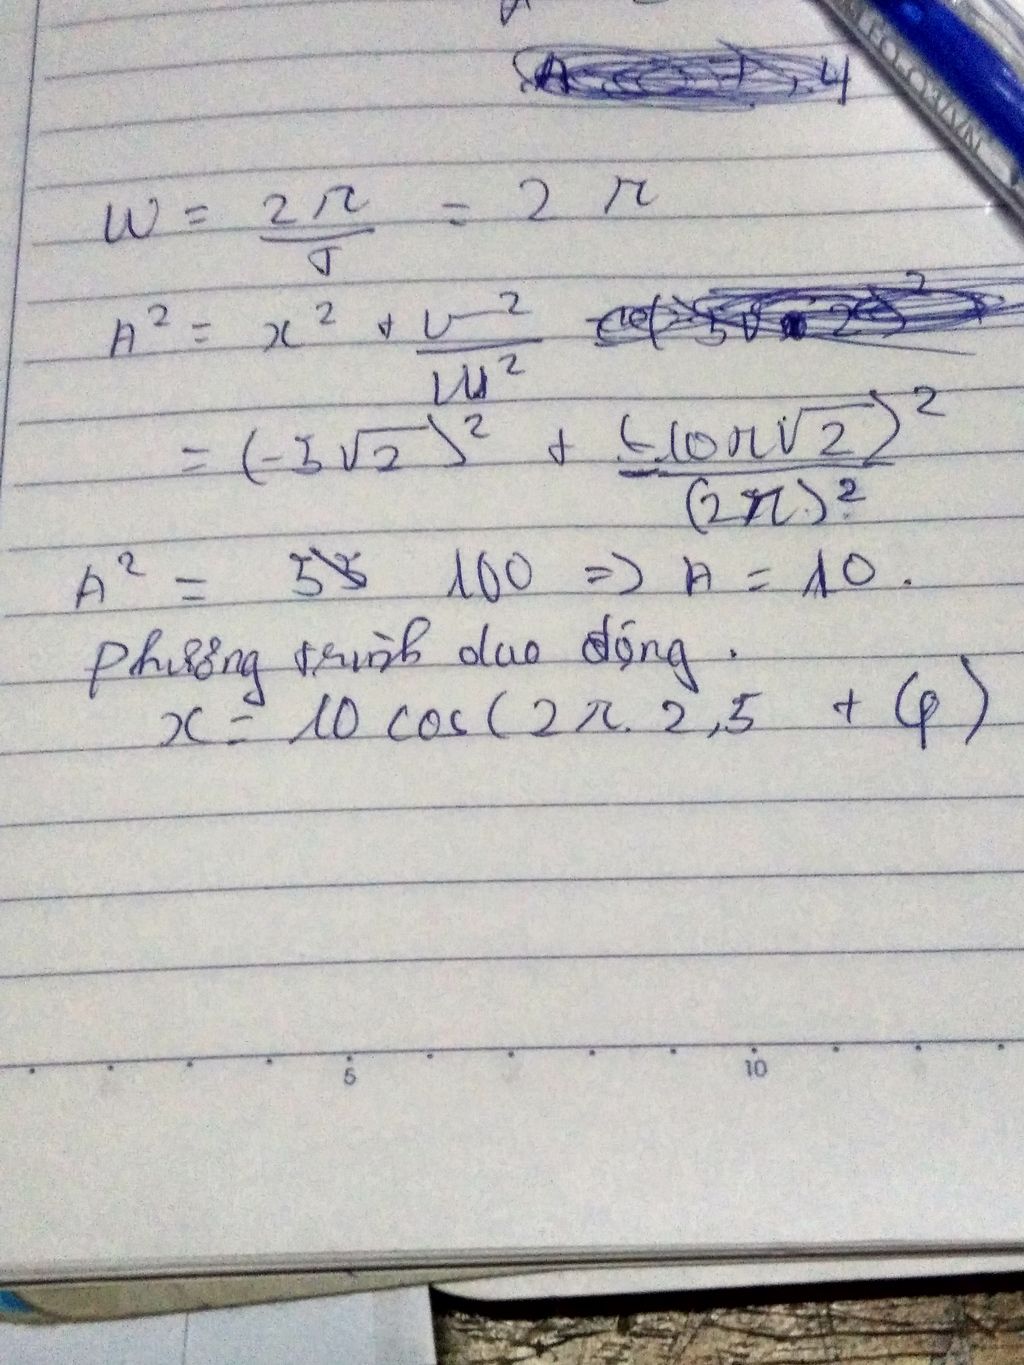 4
W = 2π/T = 2 π
A² = x² + v²/W²
= (-5√2)² + (-10π√2)²/(2π)²
A² = 100 => A = 10.
phương trình dao động.
x = 10 cos(2π.2,5 + φ)
5 10